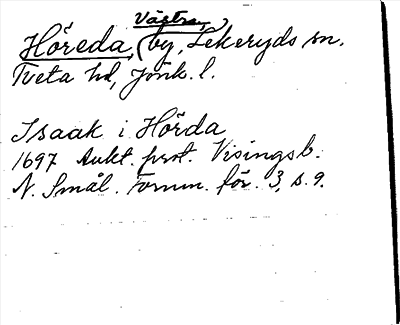 Västra,
Höreda, (by, Lekeryds sn.
Tveta hd, Jönk. l.
Isaak i Hörda
1697 Aukt. prot. Visingsb.
N. Smål. Fornm. för. 3, s. 9.